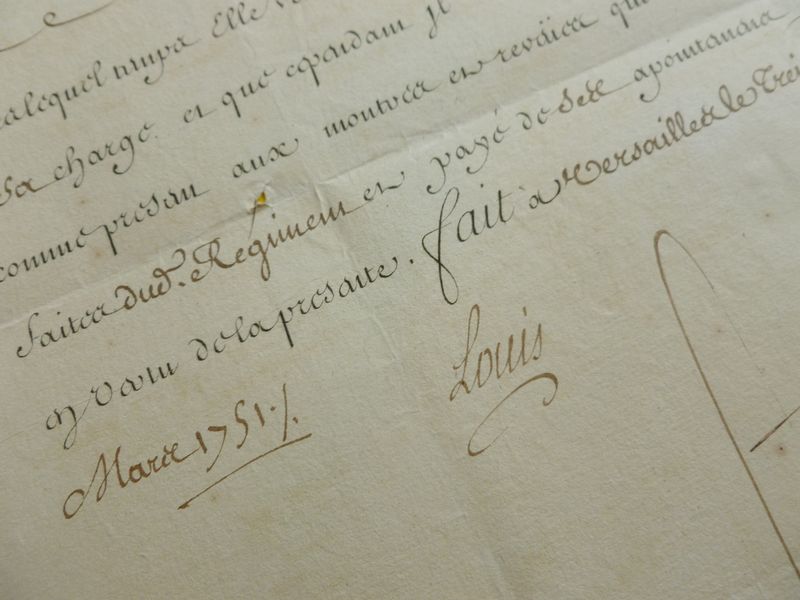 lequel temps Elle
sa charge, et que cependant il
comme présent aux montres et reveües qui
faites dud. Regiment et payé de ses apointemens
en vertu de la présente. fait a Versailles le
Mars 1751./.
Louis